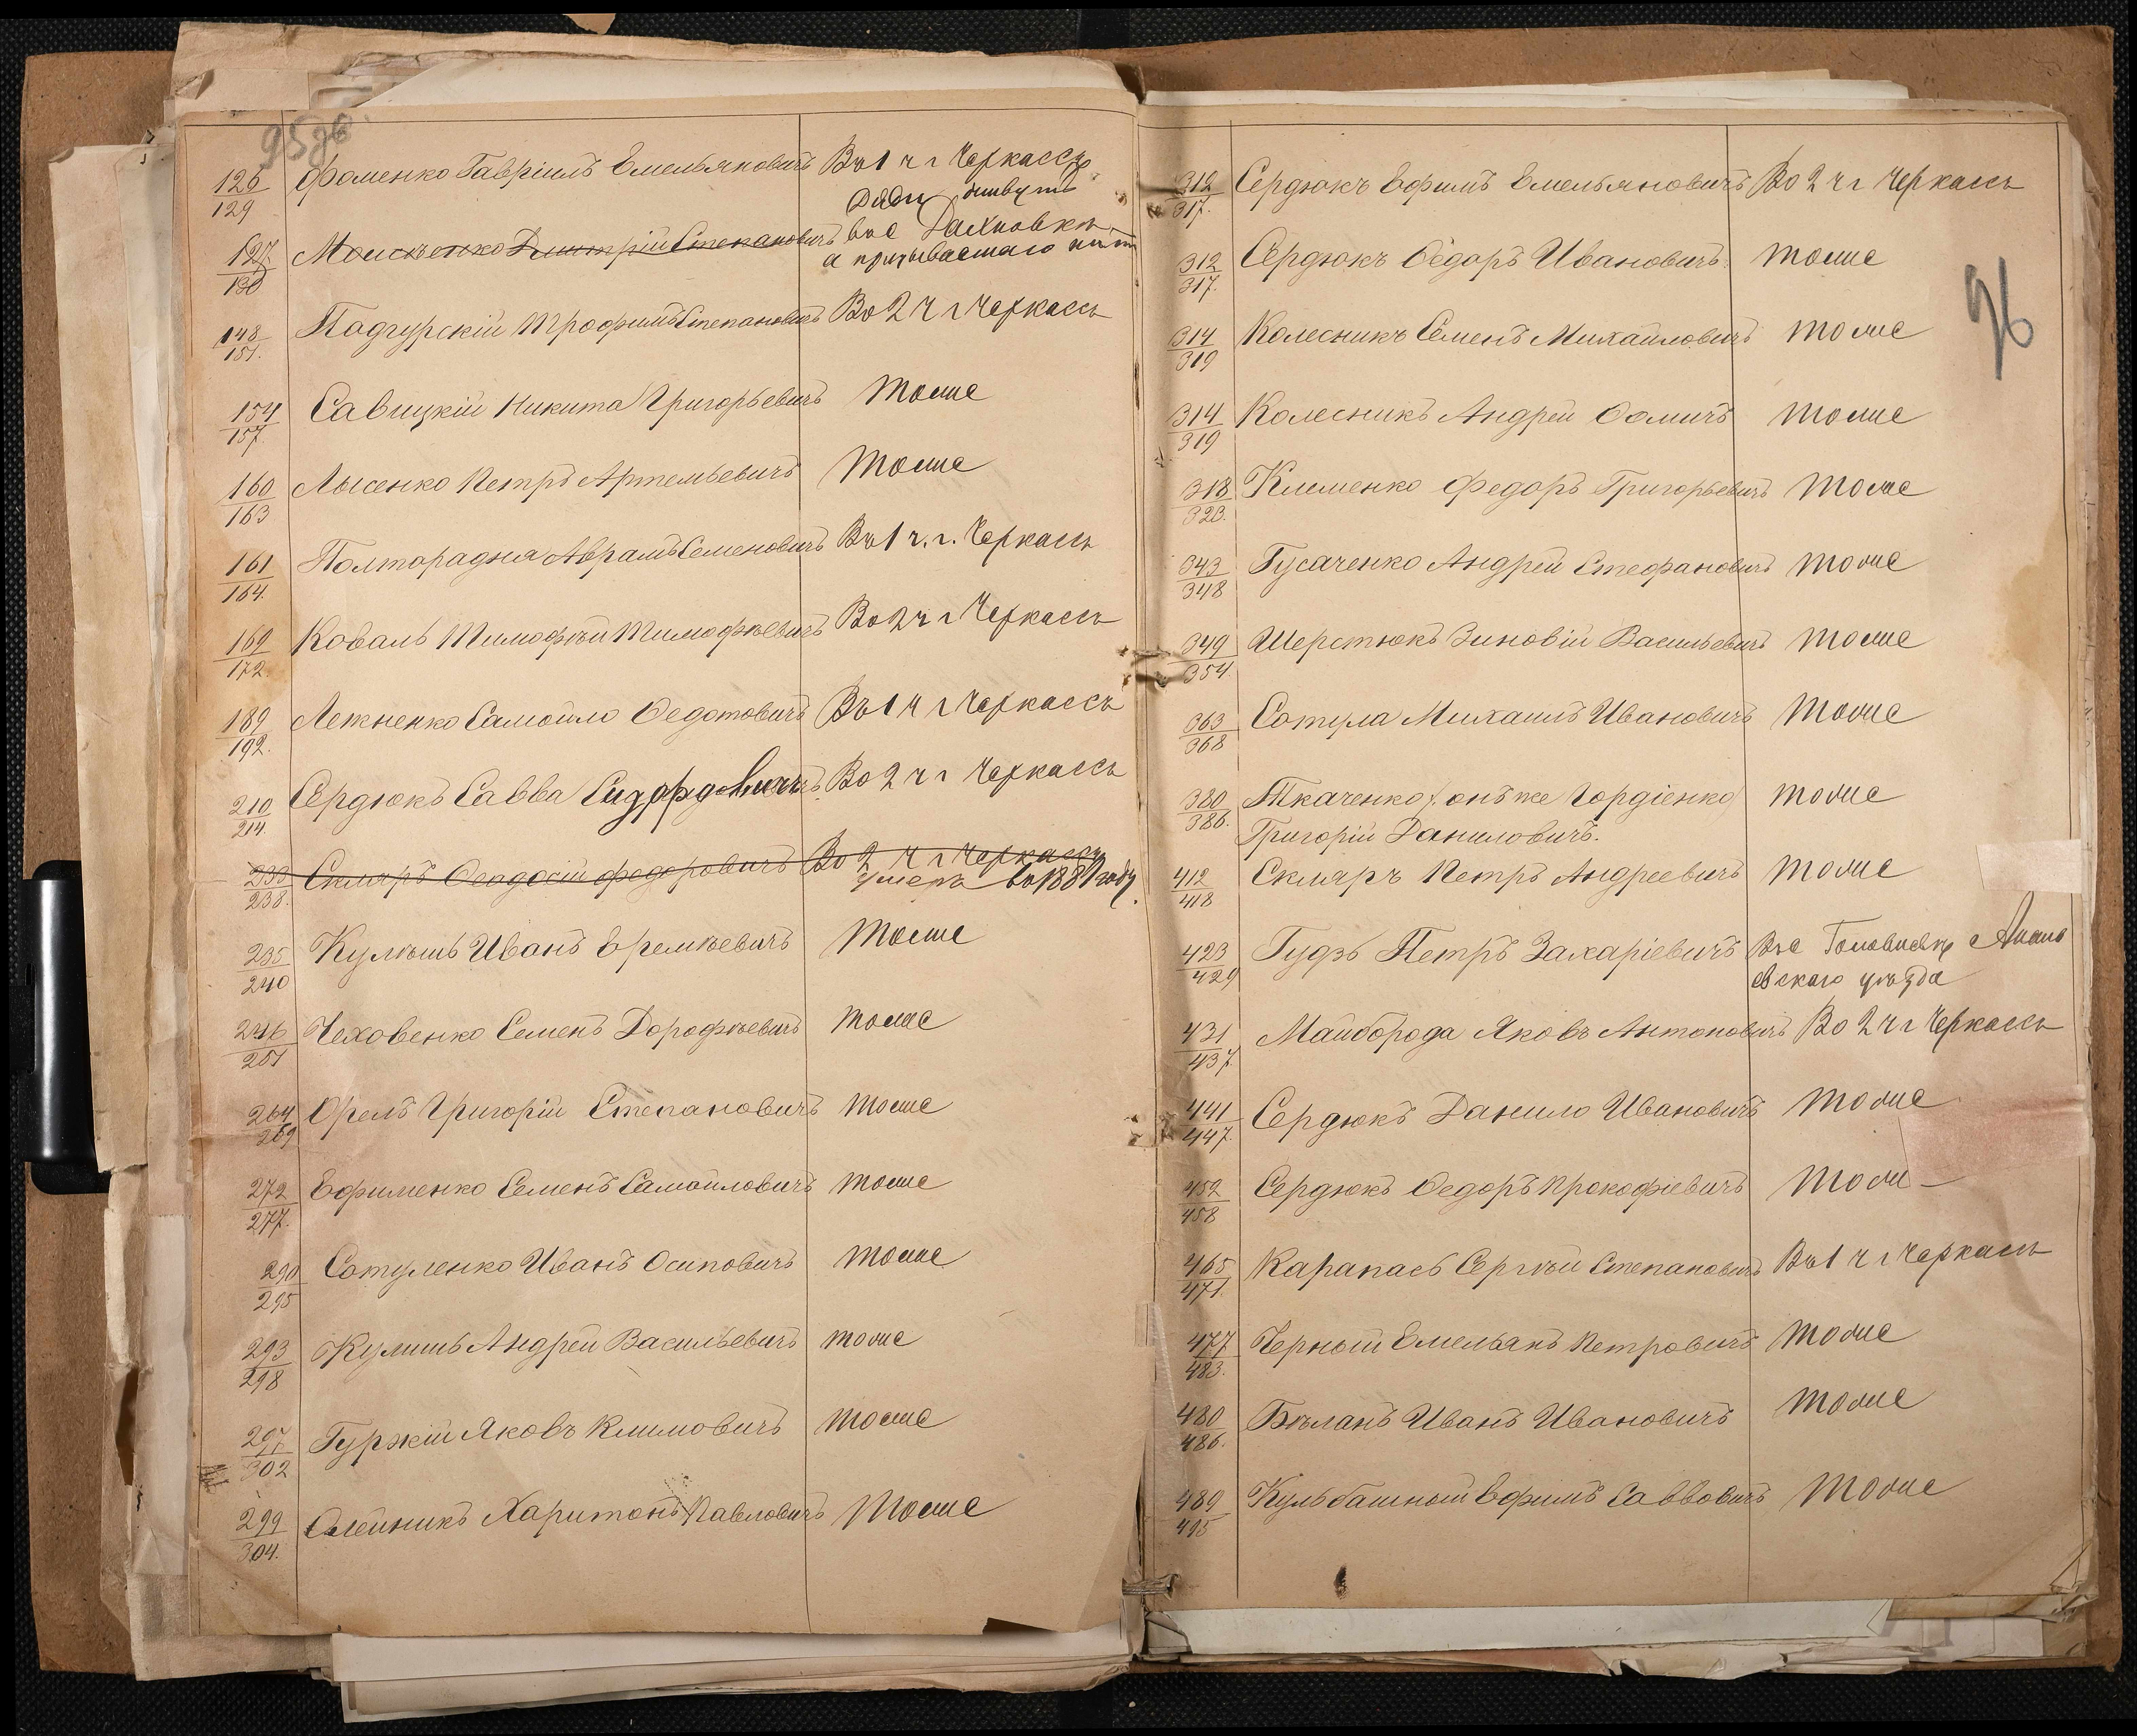 95 об
126 Фоменко Гавріилъ Емельяновичъ Въ 1 ч г Черкассъ
129 живутъ
127 Моисѣенко Дмитрій Степановичъ в с Дахновкѣ
130 а призываемаго нѣтъ
148 Падгурскій Трофимъ Степановичъ Во 2 ч г Черкассъ
151.
154 Савицкій Никита Григорьевичъ тоже
157.
160 Лысенко Петръ Артемьевичъ тоже
163
161 Полторадня Аврамъ Семеновичъ Въ 1 ч. г. Черкассъ
164.
169 Коваль Тимофѣй Тимофѣевичъ Во 2 ч г Черкассъ
172.
189 Лежненко Самойло Ѳедотовичъ Въ 1 ч г Черкассъ
192.
210 Сердюкъ Савва Сидоровичъ Во 2 ч г Черкассъ
214.
233 Скляръ Ѳеодосій Федоровичъ Во 2 ч г Черкассъ
238. умеръ въ 1889 году.
235 Кулѣшъ Иванъ Еремѣевичъ тоже
240
246 Чеховенко Семенъ Дорофѣевичъ тоже
251
264 Орелъ Григорій Степановичъ тоже
269
272 Ефименко Семенъ Самойловичъ тоже
277.
290 Сотуленко Иванъ Осиповичъ тоже
295
293 Кулишъ Андрей Васильевичъ тоже
298
297 Гуржій Яковъ Климовичъ тоже
302
299 Олейникъ Харитонъ Павловичъ тоже
304.
96
312 Сердюкъ Ефимъ Емельяновичъ Во 2 ч г Черкассъ
317.
312 Сердюкъ Ѳедоръ Ивановичъ тоже
317.
314 Колесникъ Семенъ Михайловичъ тоже
319
314 Колесникъ Андрей Ѳомичъ тоже
319
318 Клименко Федоръ Григорьевичъ тоже
323.
343 Гусаченко Андрей Стефановичъ тоже
348
349 Шерстюкъ Зиновій Васильевичъ тоже
354
363 Сотула Михаилъ Ивановичъ тоже
368
380 Ткаченко (онъ же Гордіенко) тоже
386. Григорій Даниловичъ.
412 Скляръ Петръ Андреевичъ тоже
418
423 Гудзь Петръ Захаріевичъ Въ с Головъ
429 евскаго уѣзда
431 Майборода Яковъ Антоновичъ Во 2 ч г Черкассъ
437.
441 Сердюкъ Данило Ивановичъ тоже
447.
452 Сердюкъ Ѳедоръ Прокофіевичъ тоже
458
465 Карапась Сергѣй Степановичъ Въ 1 ч г Черкассъ
471.
477 Черный Емельянъ Петровичъ тоже
483.
480 Бѣланъ Иванъ Ивановичъ тоже
486.
489 Кульбашный Ефимъ Саввовичъ тоже
495